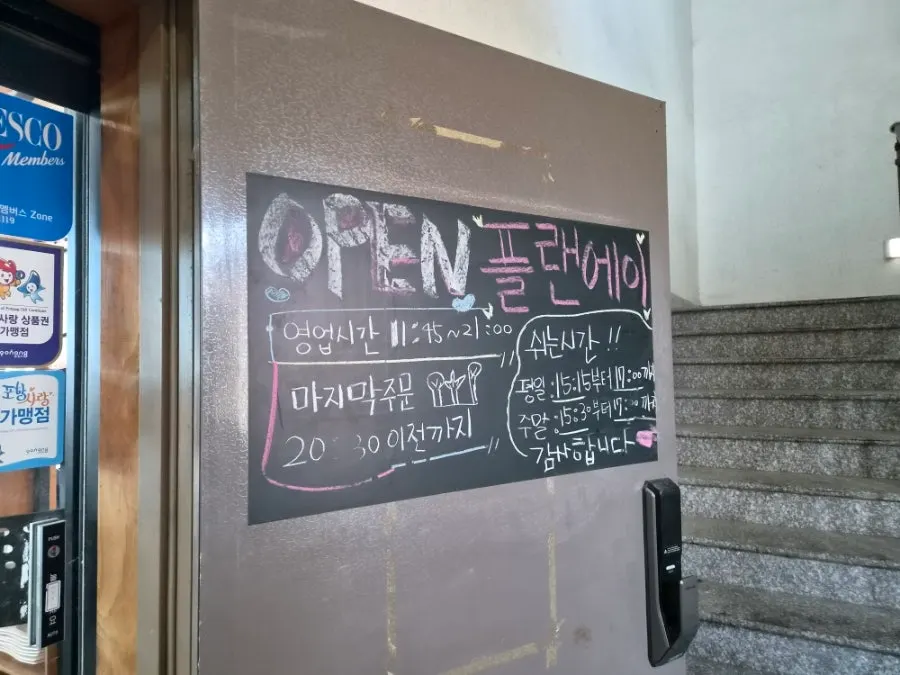 ESCO
Members
멤버스 Zone
사랑 상품권
가맹점
포항사랑
가맹점
OPEN 플랜에이
영업시간 11:45~21:00
마지막주문
20:30이전까지
쉬는시간 !!
평일:15:15부터 17:00까지
주말:15:30부터 17:30까지
감사합니다
PUSH